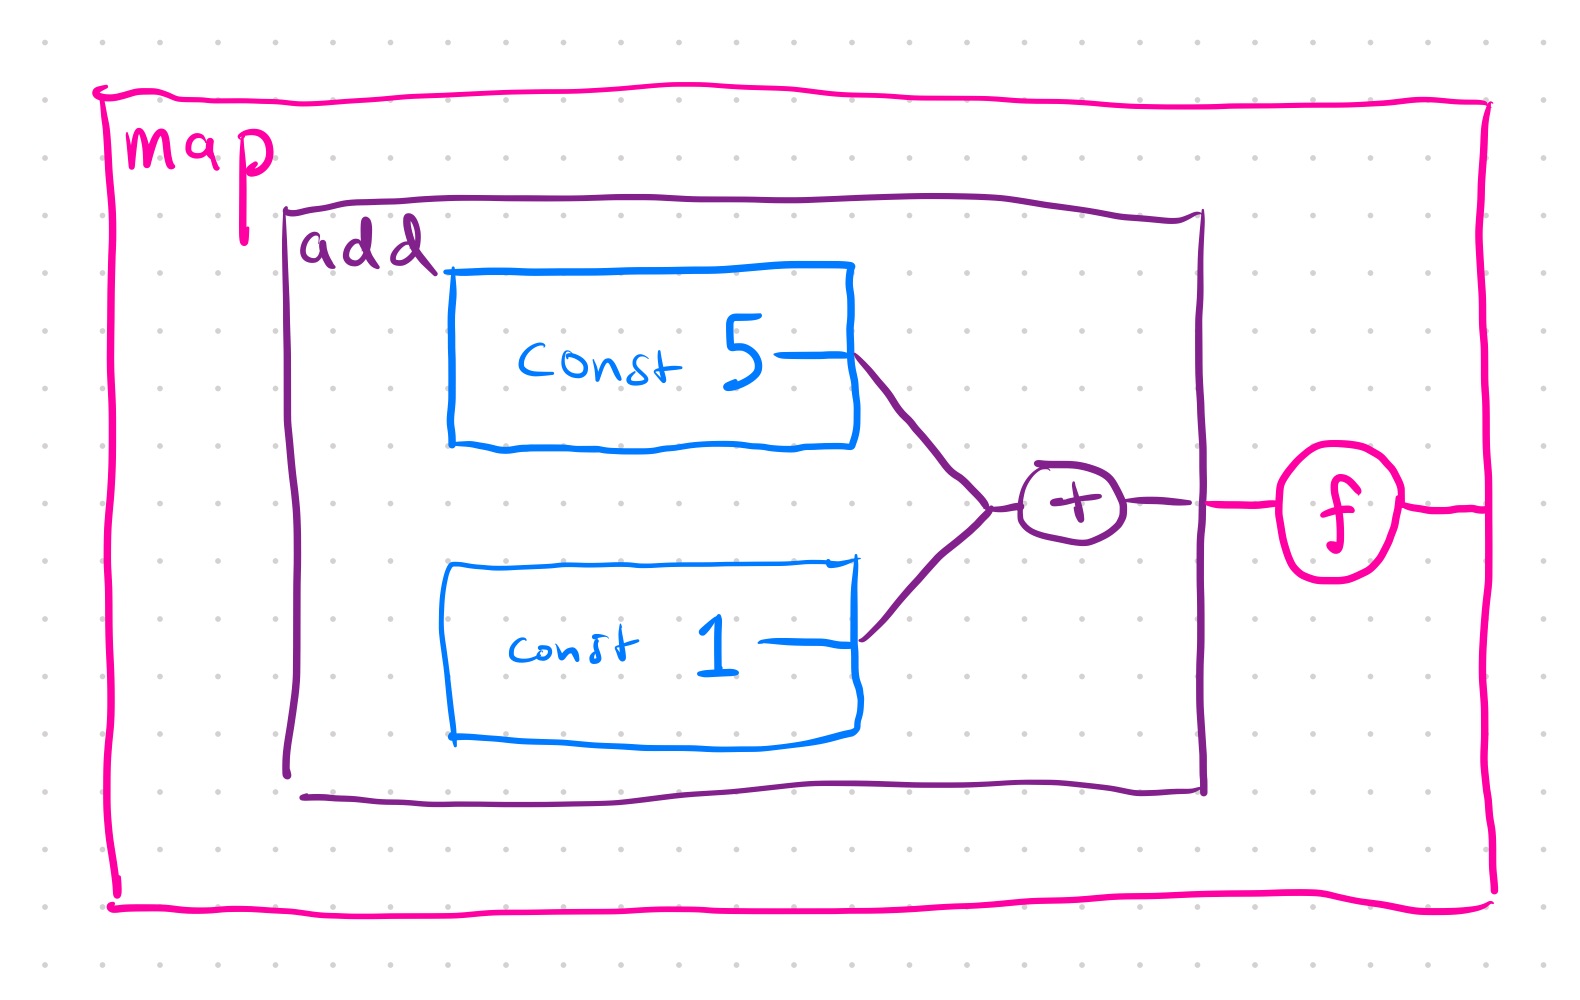 map
add
const 5
+
f
const 1